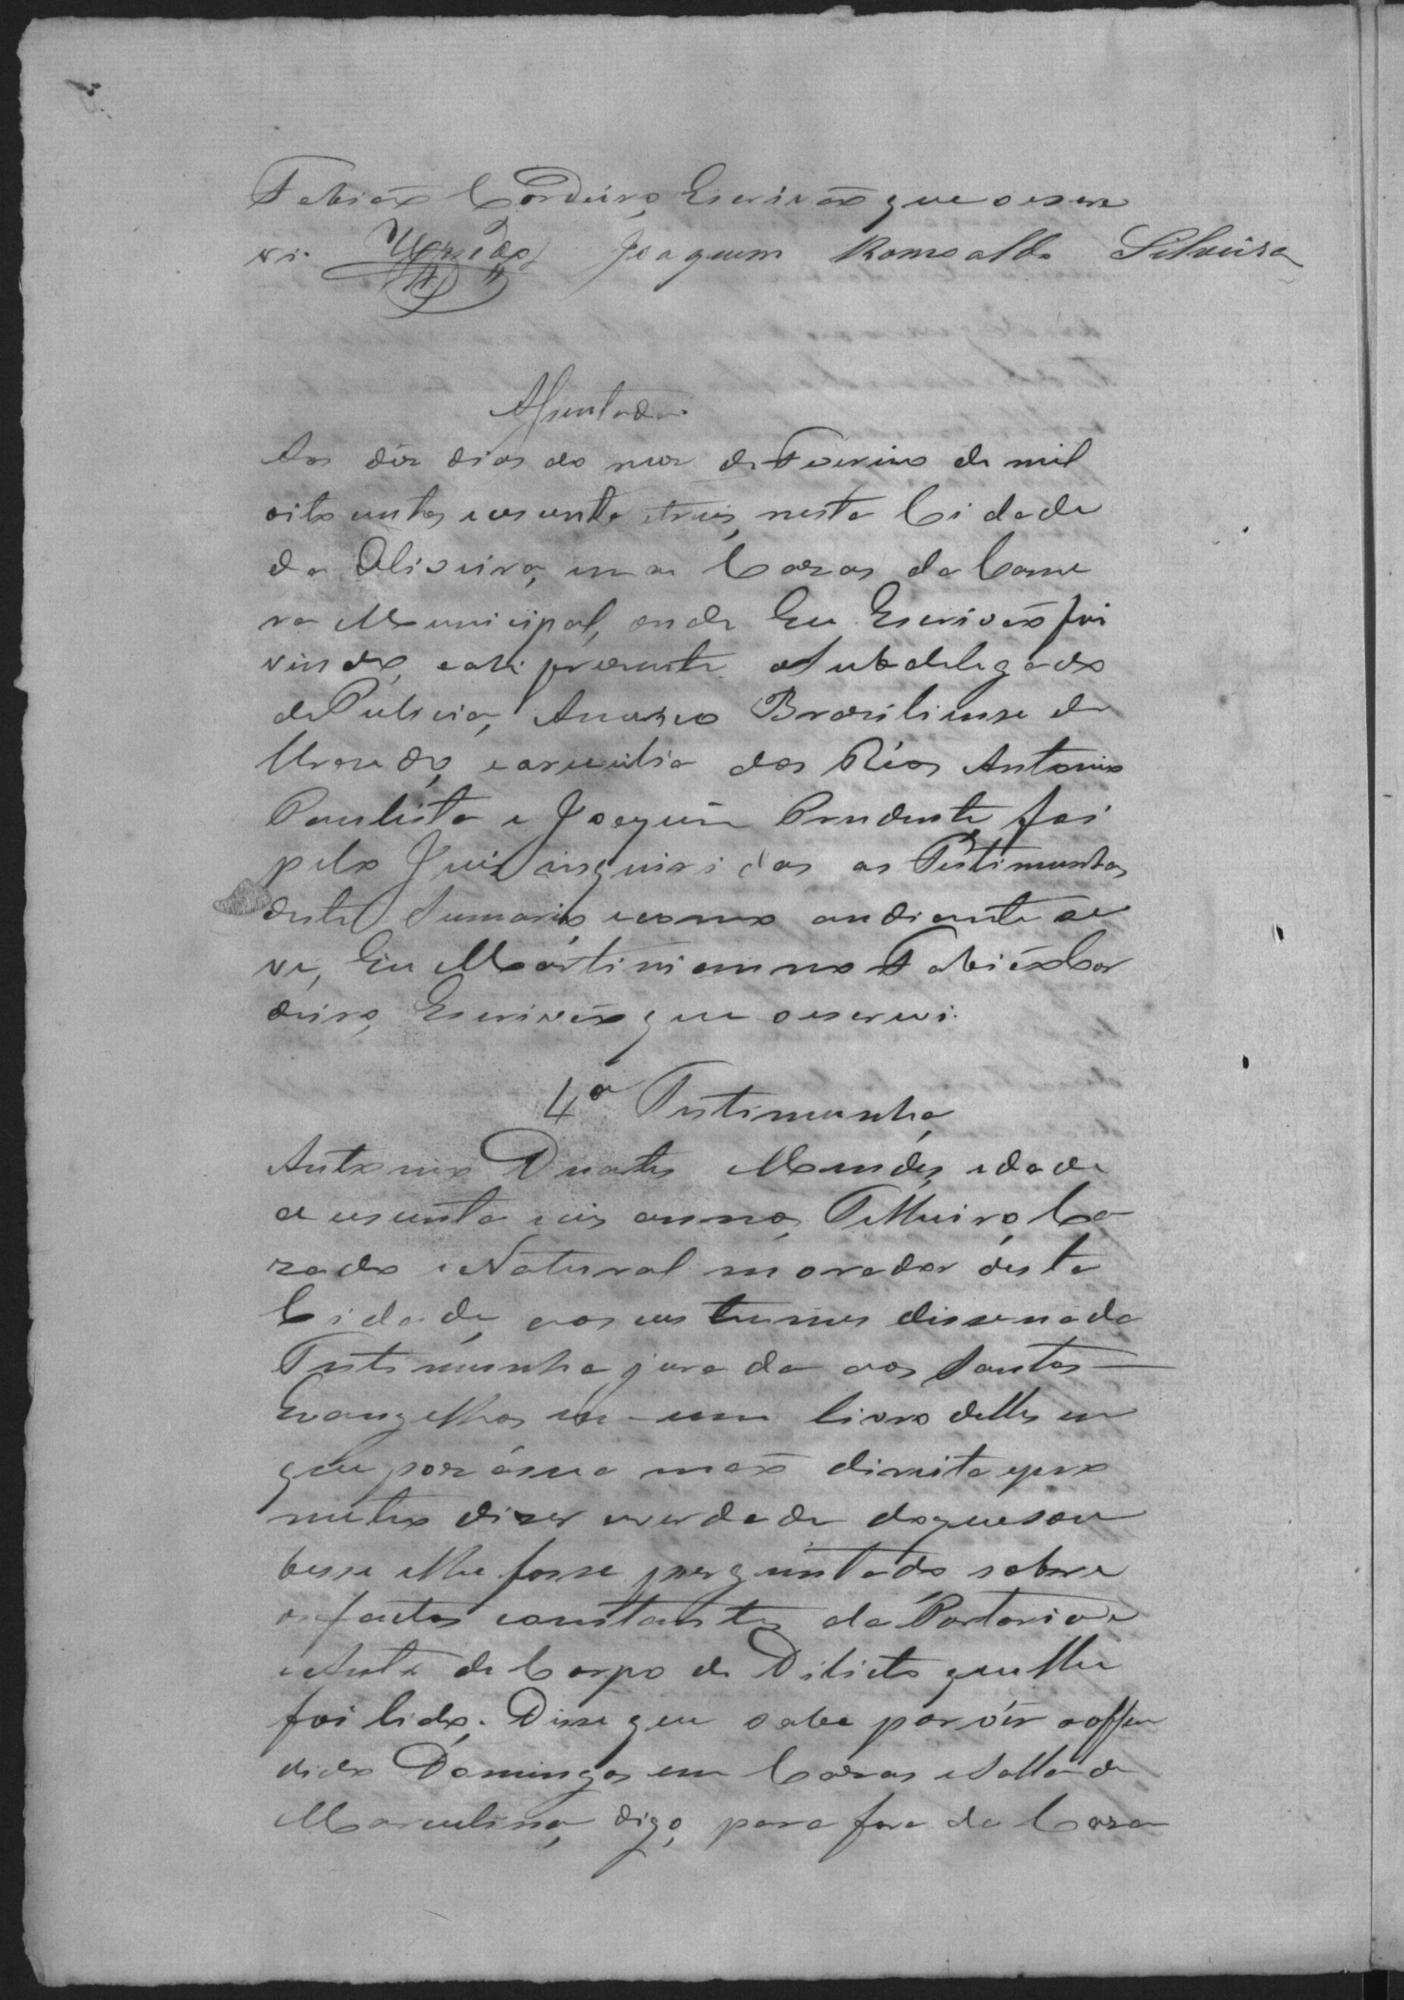 Fabiaõ Cordeiro, Escrivaõ que o escre
vi. Joaquim Romoaldo Silveira
Assentada
Aos dés dias do mez de Fevereiro de mil
oito centos e sesenta e treis, nesta Cidade
da Oliveira, em as Cazas da Cama
ra Municipal, onde Eu Escrivaõ fui
vindo, e ahi prezente o Subdelegado
de Pulicia, Braziliense de
e arevilia dos Réos Antonio
Paulista e Joaquim Prudente foi
pelo Juis inquiridas as Testimunhas
deste Sumario, como andiante se
ve, Eu Martinianno Fabiaõ Cor
deiro, Escrivaõ que o escrevi.
4ª Testimunha
Antonio Duarte Mendes, idade
de sesenta e seis annos, Telheiro, Ca
zado e Natural morador desta
Cidade, aos custumes disse nada
Testimunha jurada aos Santos
Evangelhos em um livro delles em
que poz ásua maõ direita e pro
meteo dizer averdade do que sou
besse e lhe fosse perguntado sobre
os factos constantes da Portaria e
e Auto de Corpo de Dilicto que lhe
foi lido. Disse que sabe por vêr o offen
dido Domingos em Cazas e Salla de
Marculina, digo, para fora da Caza